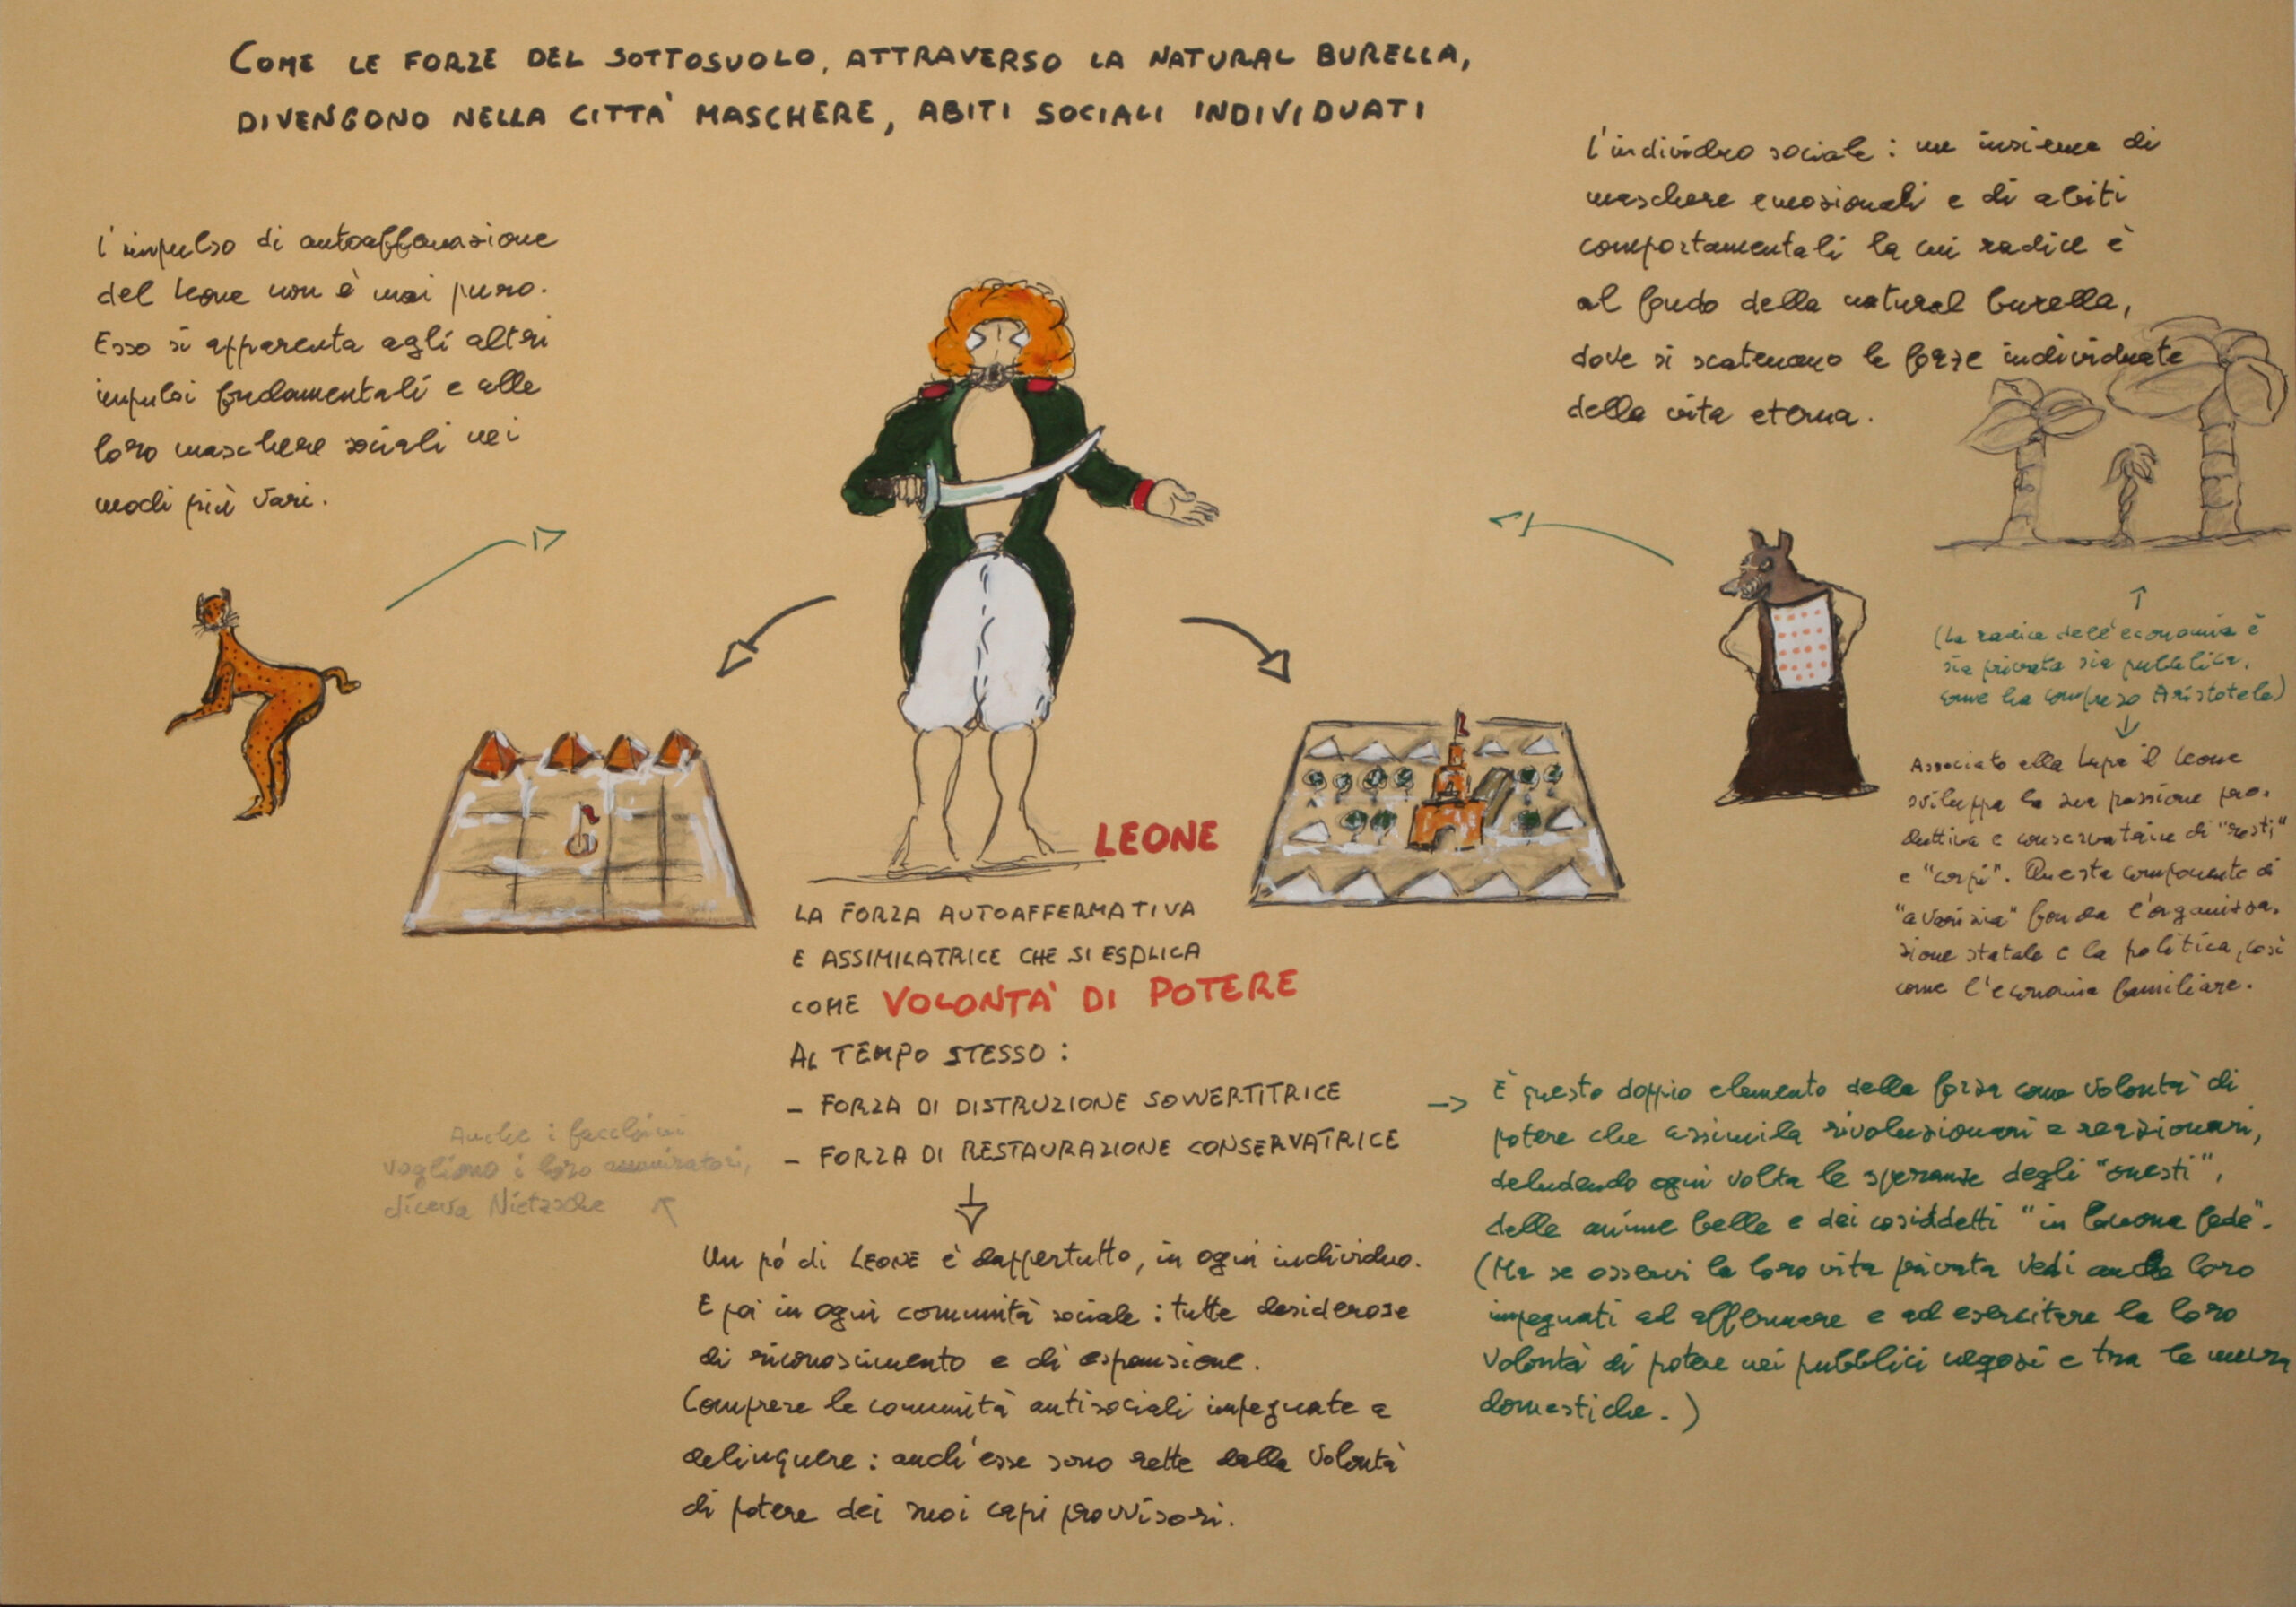 COME LE FORZE DEL SOTTOSUOLO, ATTRAVERSO LA NATURAL BURELLA,
DIVENGONO NELLA CITTA' MASCHERE, ABITI SOCIALI INDIVIDUATI
l'impulso di autoaffermazione
del leone non è mai puro.
Esso si apparenta agli altri
impulsi fondamentali e alle
loro maschere sociali nei
modi più vari.
l'individuo sociale: un insieme di
maschere emozionali e di abiti
comportamentali la cui radice è
al fondo della natural burella,
dove si scatenano le forze individuate
della vita eterna.
(La radice dell'economia è
sia privata sia pubblica,
come ha compreso Aristotele)
Associato alla Lupa il leone
sviluppa la sua passione pro-
duttiva e conservatrice di "resti"
e "corpi". Questa componente di
"avarizia" fonda l'organizza-
zione statale e la politica, così
come l'economia familiare.
LEONE
LA FORZA AUTOAFFERMATIVA
E ASSIMILATRICE CHE SI ESPLICA
COME VOLONTA' DI POTERE
AL TEMPO STESSO:
- FORZA DI DISTRUZIONE SOVVERTITRICE
- FORZA DI RESTAURAZIONE CONSERVATRICE
Anche i facchini
vogliono i loro ammiratori,
diceva Nietzsche
È questo doppio elemento della forza come volontà di
potere che assimila rivoluzionari e reazionari,
deludendo ogni volta le speranze degli "onesti",
delle anime belle e dei cosiddetti "in buona fede".
(Ma se osservi la loro vita privata vedi anche loro
impegnati ad affermare e ad esercitare la loro
volontà di potere nei pubblici negozi e tra le mura
domestiche.)
Un pò di LEONE è dappertutto, in ogni individuo.
E poi in ogni comunità sociale: tutte desiderose
di riconoscimento e di espansione.
Comprese le comunità antisociali impegnate a
delinquere: anch'esse sono rette dalla volontà
di potere dei suoi capi provvisori.